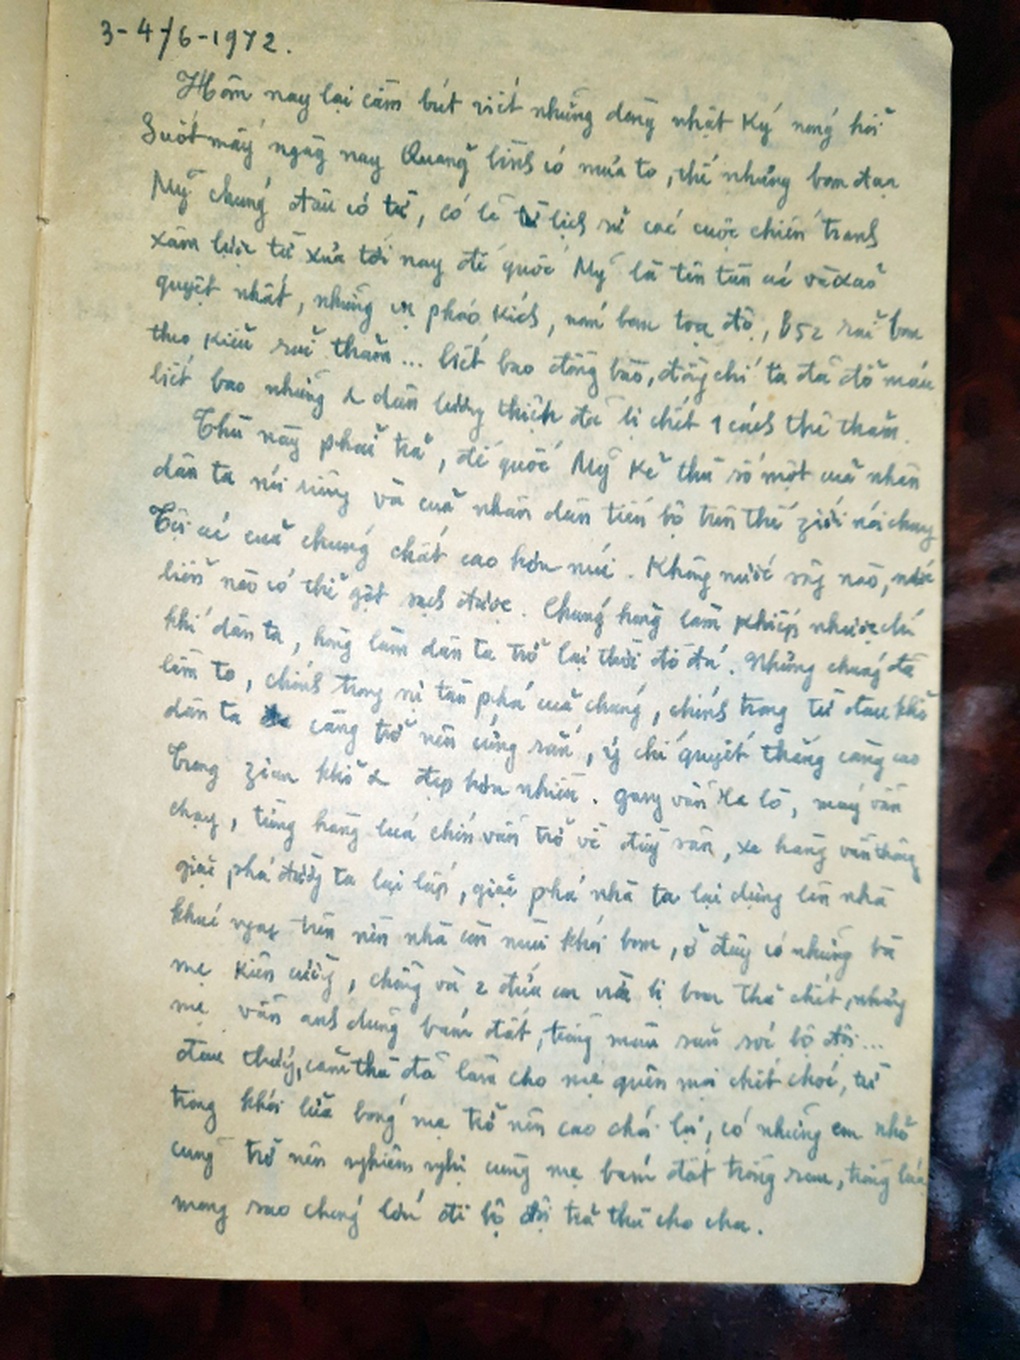 3-4-/6-1972.
Hôm nay lại cầm bút viết những dòng nhật ký nóng hổi
Suốt mấy ngày nay Quảng bình có mưa to, thế nhưng bom đạn
Mỹ chúng đâu có từ, có lẽ từ lịch sử các cuộc chiến tranh
xâm lược từ xưa tới nay đế quốc Mỹ là tên tàn ác và xảo
quyệt nhất, những vụ pháo kích, ném bom toạ độ, B52 rải bom
theo kiểu rải thảm... biết bao đồng bào, đồng chí ta đã đổ máu
biết bao những dân lương thiện đã bị chết 1 cách thê thảm.
Thù này phải trả, đế quốc Mỹ kẻ thù số một của nhân
dân ta nói riêng và của nhân dân tiến bộ trên thế giới nói chung
Tội ác của chúng chất cao hơn núi. Không nước sông nào, nước
biển nào có thể gột sạch được. Chúng hòng làm khiếp nhược chí
khí dân ta, hòng làm dân ta trở lại thời đồ đá. Nhưng chúng đã
lầm to, chính trong sự tàn phá của chúng, chính trong từ đau khổ
dân ta càng trở nên cứng rắn, ý chí quyết thắng càng cao
trong gian khổ đẹp hơn nhiều. gang vẫn ra lò, máy vẫn
chạy, từng hàng lúa chín vẫn trở về đầy sân, xe hàng vẫn thông
giặc phá đường ta lại lấp, giặc phá nhà ta lại dựng lên nhà
khác ngay trên nền nhà còn mùi khói bom, ở đây có những bà
mẹ kiên cường, chồng và 2 đứa con vừa bị bom thù chết, nhưng
mẹ vẫn anh dũng bám đất, trồng màu rau với bộ đội...
đau thương, căm thù đã làm cho mẹ quên mọi chết chóc, từ
trong khói lửa bóng mẹ trở nên cao chói lọi, có những em nhỏ
cũng trở nên nghiêm nghị cùng mẹ bám đất trồng rau, trồng lúa
mong sao chóng lớn đi bộ đội trả thù cho cha.